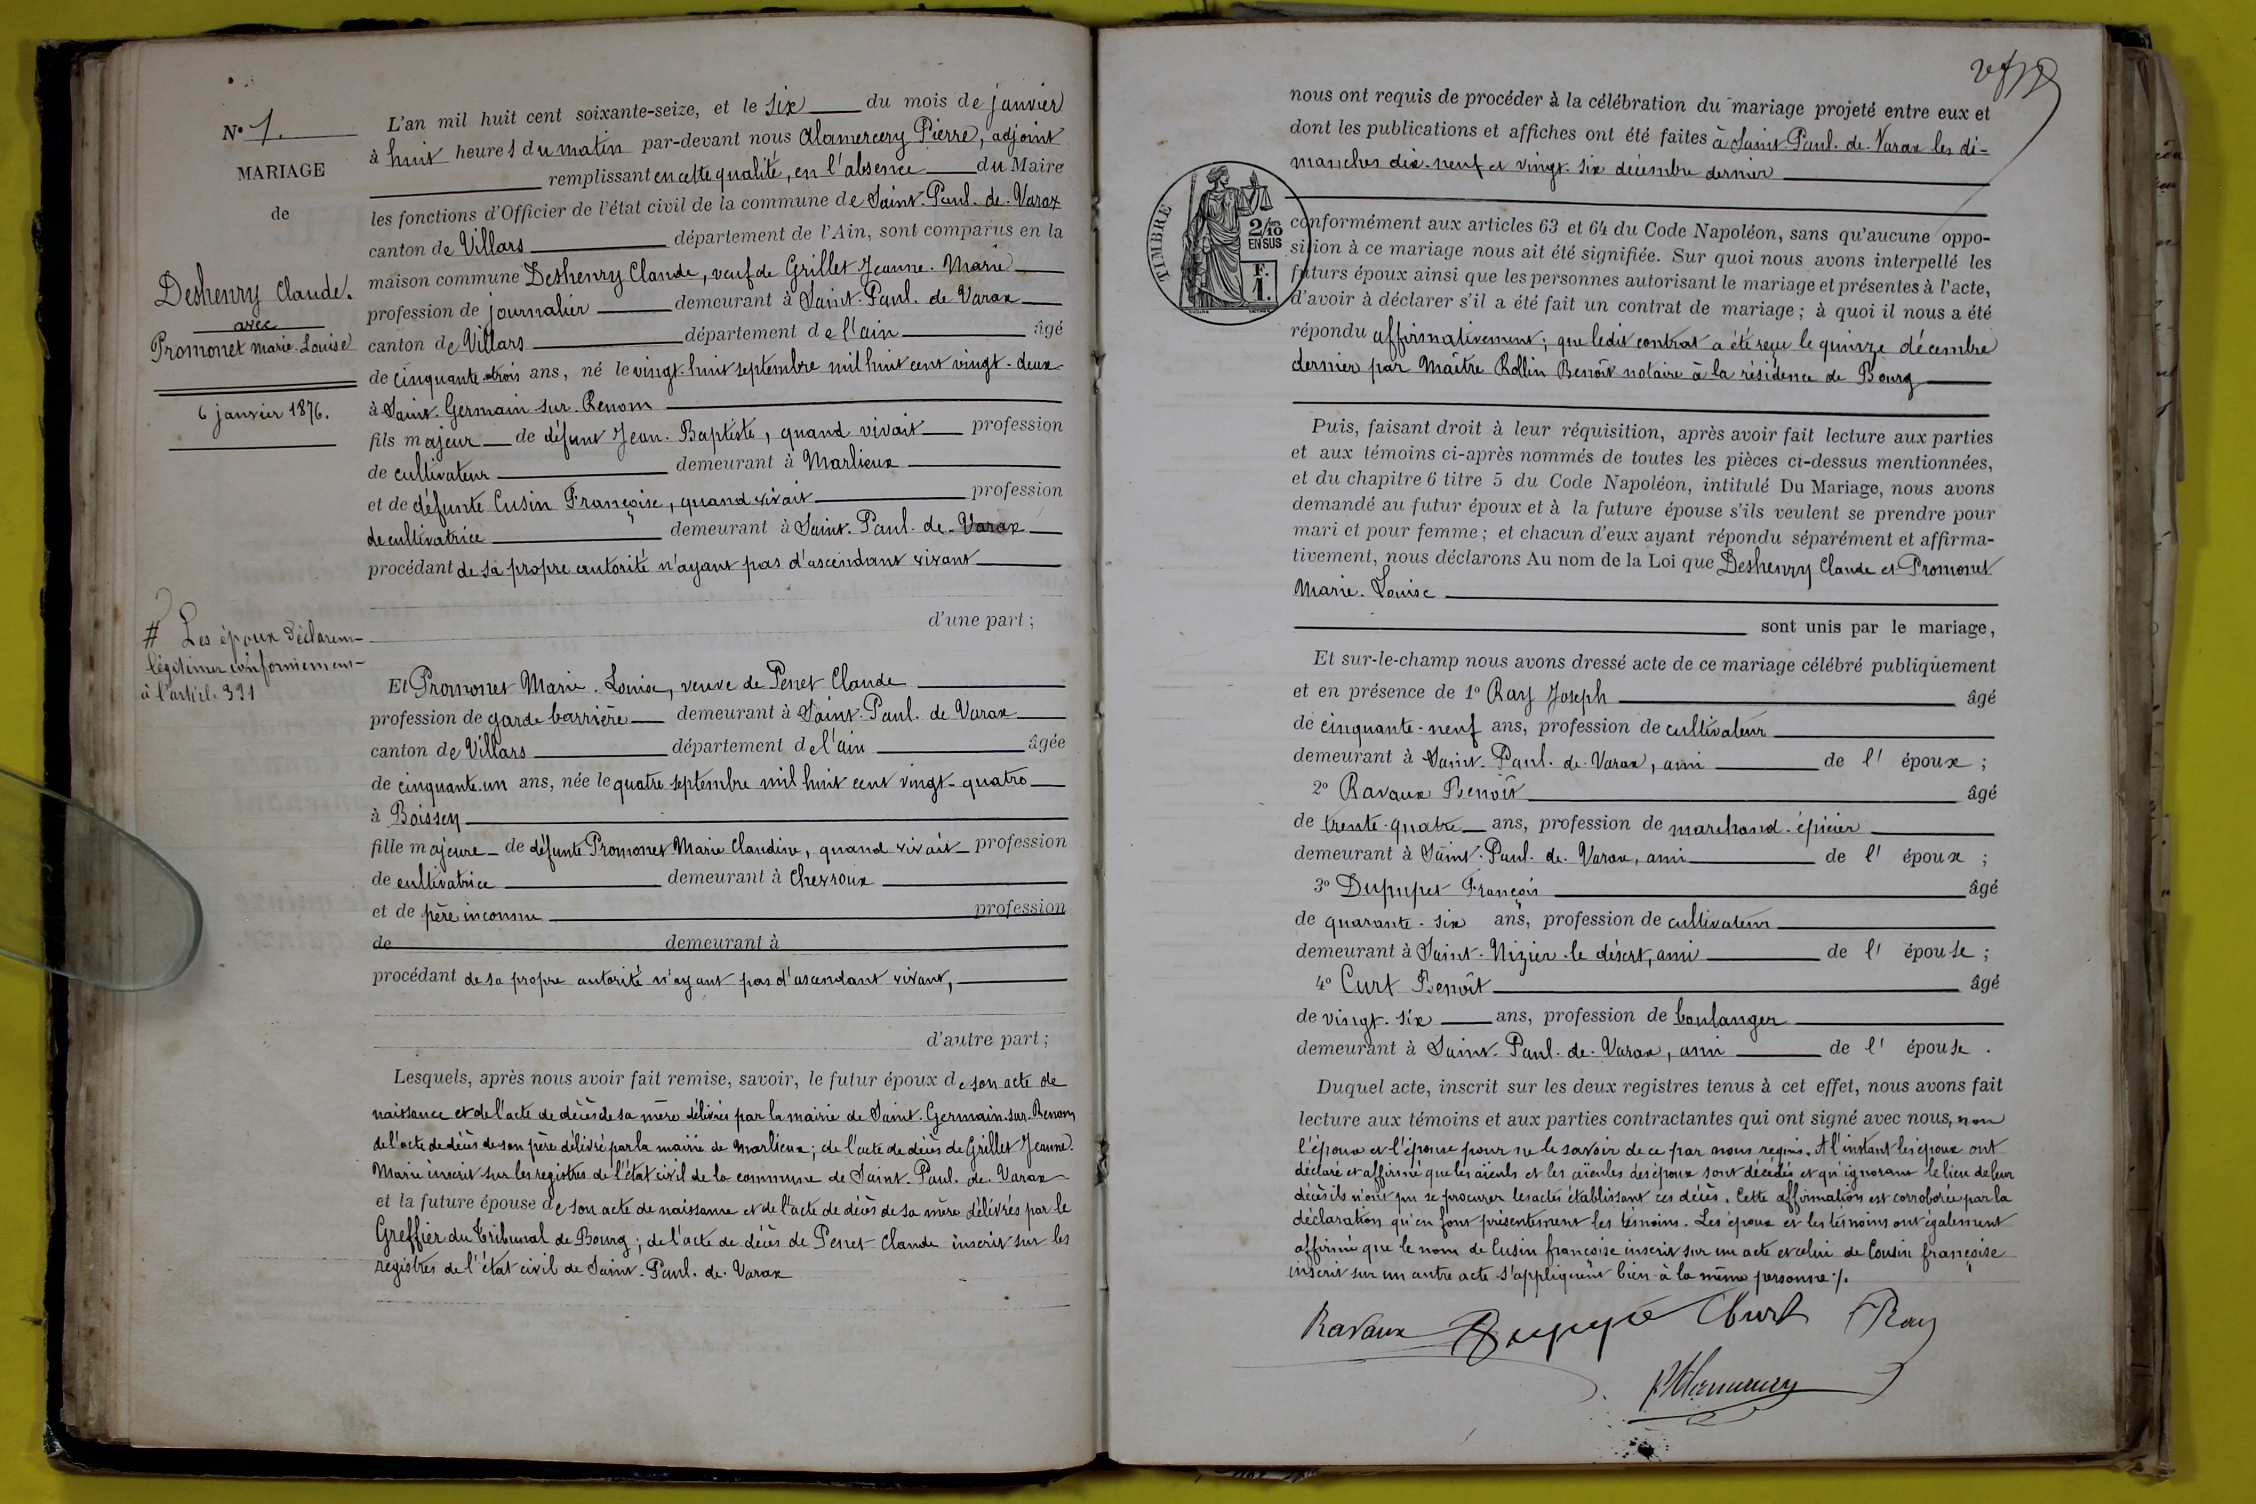 N° 1.
MARIAGE
de
Deshenry Claude.
avec
Promonet Marie-Louise
6 janvier 1876.
# Les époux déclarent
légitimer conformément
à l'article 331
L'an mil huit cent soixante-seize, et le six du mois de janvier
à huit heures du matin par-devant nous Alamercery Pierre, adjoint
remplissant en cette qualité, en l'absence du Maire
les fonctions d'Officier de l'état civil de la commune de Saint-Paul-de-Varax
canton de Villars département de l'Ain, sont comparus en la
maison commune Deshenry Claude, veuf de Grillet Jeanne-Marie
profession de journalier demeurant à Saint-Paul-de-Varax
canton de Villars département de l'ain âgé
de cinquante-trois ans, né le vingt-huit septembre mil huit cent vingt-deux
à Saint-Germain-sur-Renom
fils majeur de défunt Jean-Baptiste, quand vivait profession
de cultivateur demeurant à Marlieux
et de défunte Cusin Françoise, quand vivait profession
de cultivatrice demeurant à Saint-Paul-de-Varax
procédant de sa propre autorité n'ayant pas d'ascendant vivant
d'une part ;
Et Promonet Marie-Louise, veuve de Penet Claude
profession de garde barrière demeurant à Saint-Paul-de-Varax
canton de Villars département de l'ain âgée
de cinquante-un ans, née le quatre septembre mil huit cent vingt-quatre
à Boissey
fille majeure de défunte Promonet Marie Claudine, quand vivait profession
de cultivatrice demeurant à Chevroux
et de père inconnu profession
de demeurant à
procédant de sa propre autorité n'ayant pas d'ascendant vivant,
d'autre part ;
Lesquels, après nous avoir fait remise, savoir, le futur époux de son acte de
naissance et de l'acte de décès de sa mère délivrés par la mairie de Saint-Germain-sur-Renom
de l'acte de décès de son père délivré par la mairie de Marlieux ; de l'acte de décès de Grillet Jeanne-
Marie inscrit sur les registres de l'état civil de la commune de Saint-Paul-de-Varax
et la future épouse de son acte de naissance et de l'acte de décès de sa mère délivrés par le
Greffier du Tribunal de Bourg ; de l'acte de décès de Penet Claude inscrit sur les
registres de l'état civil de Saint-Paul-de-Varax
nous ont requis de procéder à la célébration du mariage projeté entre eux et
dont les publications et affiches ont été faites à Saint-Paul-de-Varax les di-
manches dix-neuf et vingt-six décembre dernier
TIMBRE
2/10
EN SUS
F.
1.
conformément aux articles 63 et 64 du Code Napoléon, sans qu'aucune oppo-
sition à ce mariage nous ait été signifiée. Sur quoi nous avons interpellé les
futurs époux ainsi que les personnes autorisant le mariage et présentes à l'acte,
d'avoir à déclarer s'il a été fait un contrat de mariage ; à quoi il nous a été
répondu affirmativement ; que ledit contrat a été reçu le quinze décembre
dernier par Maître Rollin Benoît notaire à la résidence de Bourg
Puis, faisant droit à leur réquisition, après avoir fait lecture aux parties
et aux témoins ci-après nommés de toutes les pièces ci-dessus mentionnées,
et du chapitre 6 titre 5 du Code Napoléon, intitulé Du Mariage, nous avons
demandé au futur époux et à la future épouse s'ils veulent se prendre pour
mari et pour femme ; et chacun d'eux ayant répondu séparément et affirma-
tivement, nous déclarons Au nom de la Loi que Deshenry Claude et Promonet
Marie-Louise
sont unis par le mariage,
Et sur-le-champ nous avons dressé acte de ce mariage célébré publiquement
et en présence de 1° Ray Joseph âgé
de cinquante-neuf ans, profession de cultivateur
demeurant à Saint-Paul-de-Varax, ami de l' époux ;
2° Ravaux Benoît âgé
de trente-quatre ans, profession de marchand-épicier
demeurant à Saint-Paul-de-Varax, ami de l' époux ;
3° Dupupet François âgé
de quarante-six ans, profession de cultivateur
demeurant à Saint-Nizier-le désert, ami de l' épouse ;
4° Curt Benoît âgé
de vingt-six ans, profession de boulanger
demeurant à Saint-Paul-de-Varax, ami de l' épouse .
Duquel acte, inscrit sur les deux registres tenus à cet effet, nous avons fait
lecture aux témoins et aux parties contractantes qui ont signé avec nous, non
l'époux et l'épouse pour ne le savoir de ce par nous requis. A l'instant les époux ont
déclaré et affirmé que les aïeuls et les aïeules des époux sont décédés et qu'ignorant le lieu de leur
décès ils n'ont pu se procurer les actes établissant ces décès. Cette affirmation est corroborée par la
déclaration qu'en font présentement les témoins. Les époux et les témoins ont également
affirmé que le nom de Cusin françoise inscrit sur un acte et celui de Cousin françoise
inscrit sur un autre acte s'appliquent bien à la même personne ./.
Ravaux Dupupet Curt Ray
P Alamercery